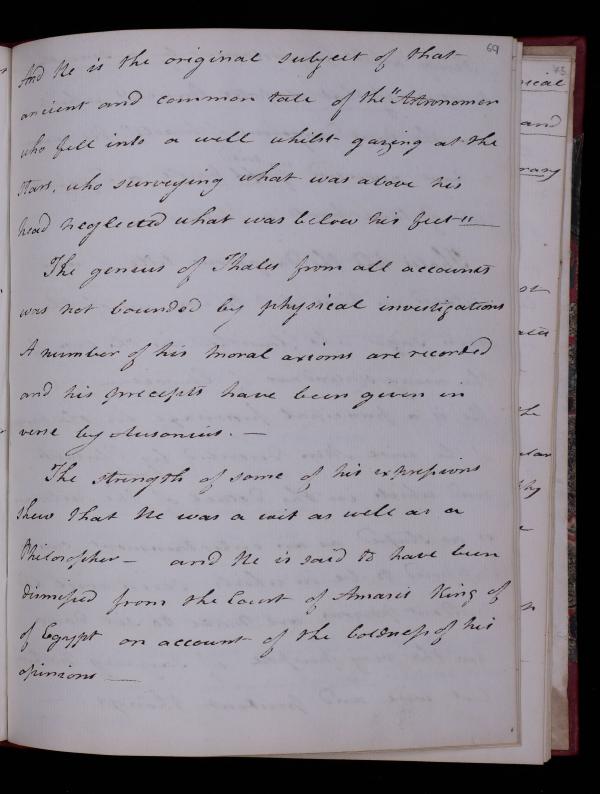 69
And He is the original subject of that
ancient and common tale of the "Astronomer
who fell into a well whilst gazing at the
Stars, who surveying what was above his
head neglected what was below his feet"
The genius of Thales from all accounts
was not bounded by physical investigations
A number of his moral axioms are recorded
and his precepts have been given in
verse by Ausonius. —
The strength of some of his expressions
shew that He was a wit as well as a
Philosopher — and He is said to have been
dismissed from the Court of Amasis King of
of Egypt on account of the boldness of his
opinions —
and
the